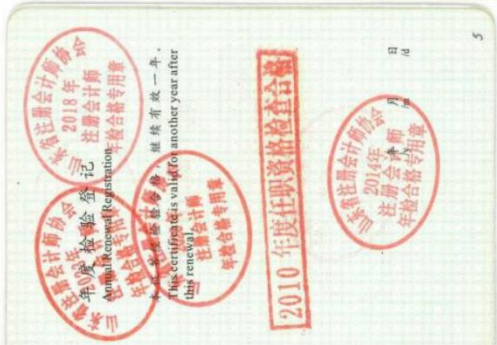 年度检验登记
Annual Renewal Registration
本证书经检验合格,继续有效一年。
This certificate is valid for another year after
this renewal.
山东省注册会计师协会
2018年
注册会计师
年检合格专用章
注册会计师
年检合格专用章
2010年度任职资格检查合格
山东省注册会计师协会
2014年
注册会计师
年检合格专用章
年 月 日
/m /d
5